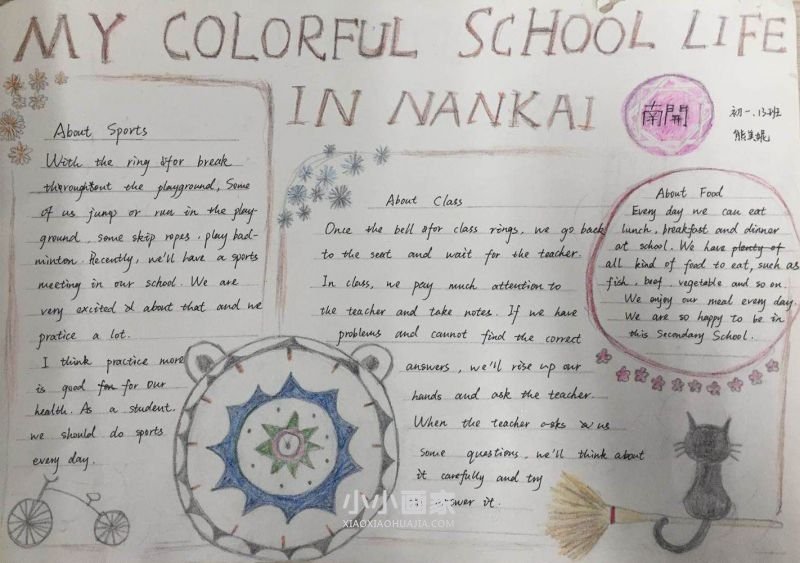 MY COLORFUL SCHOOL LIFE
IN NANKAI
南開
初一.13班
About Sports
With the ring for break
throroughtout the playground, Some
of us jump or run in the play-
ground, some skip ropes, play bad-
minton. Recently, we'll have a sports
meeting in our school. We are
very excited about that and we
pratice a lot.
I think practice more
is good for our
health. As a student.
we should do sports
every day.
About Class
Once the bell for class rings, we go back
to the seat and wait for the teacher.
In class, we pay much attention to
the teacher and take notes. If we have
problems and cannot find the correct
answers, we'll rise up our
hands and ask the teacher.
When the teacher asks us
some questions, we'll think about
it carefully and try
to answer it.
About Food
Every day we can eat
lunch, breakfast and dinner
at school. We have plenty of
all kind of food to eat, such as
fish, beef, vegetable and so on.
We enjoy our meal every day.
We are so happy to be in
this Secondary School.
小小画家
XIAOXIAOHUAJIA.COM